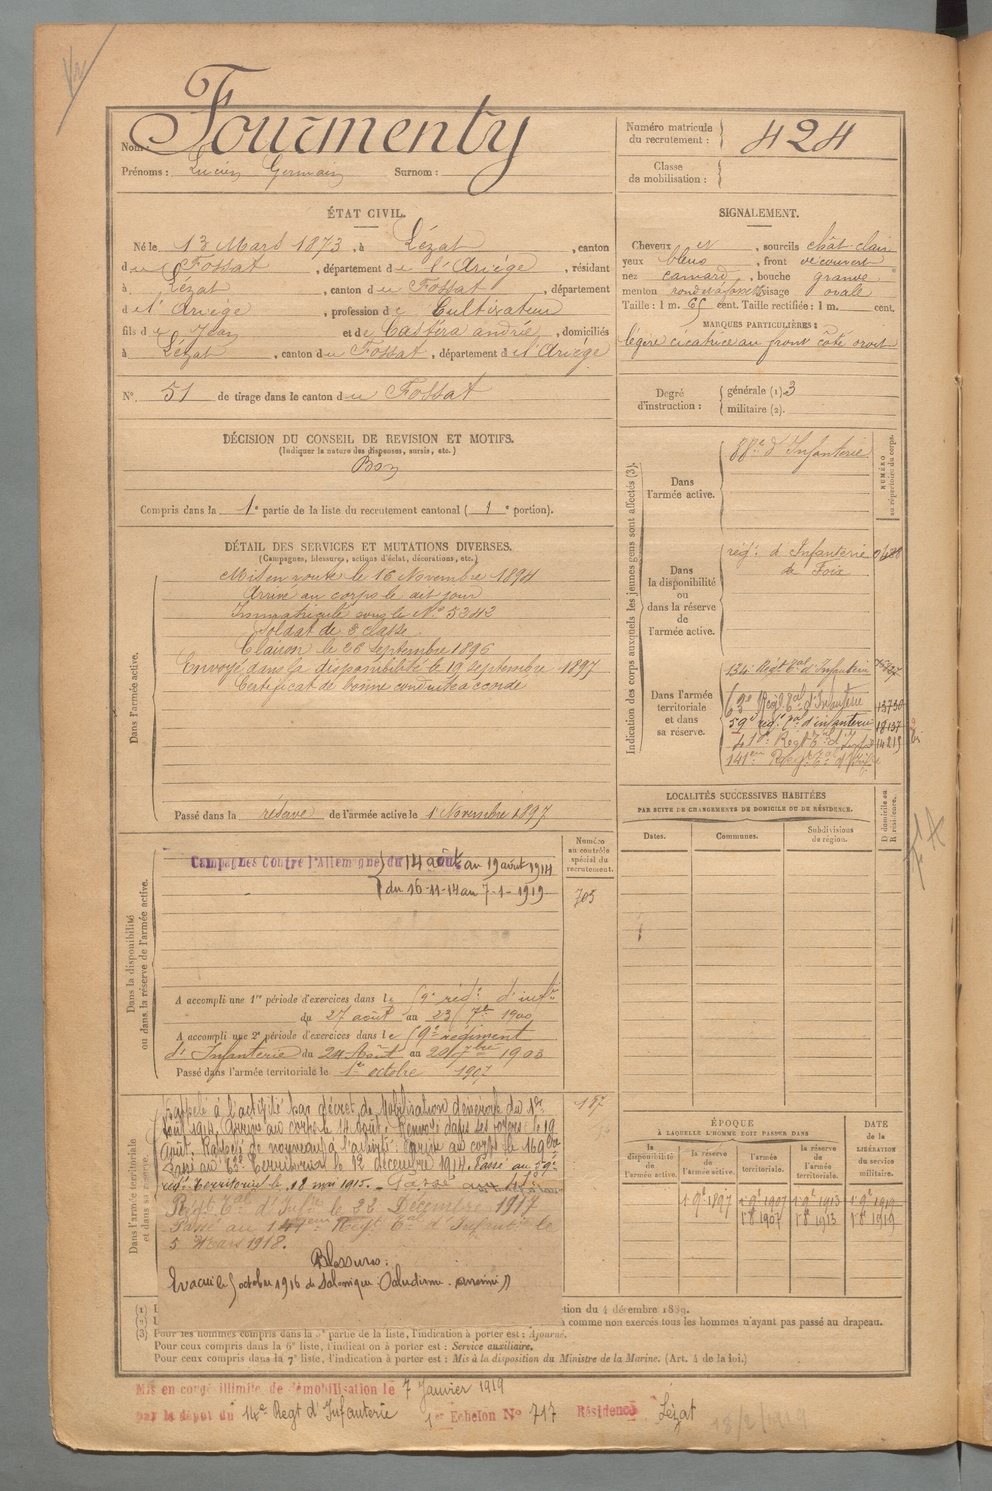 Nom: Fourmenty
Prénoms : Lucien Germain Surnom :
Numéro matricule du recrutement : 424
Classe de mobilisation :
ÉTAT CIVIL.
Né le 13 Mars 1873, à Lézat, canton
du Fossat, département de l'Ariège, résidant
à Lézat, canton du Fossat, département
d l'Ariège, profession de Cultivateur
fils de Jean et de Castéra andrée, domiciliés
à Lézat, canton du Fossat, département de l'Ariège
N° 51 de tirage dans le canton du Fossat
SIGNALEMENT.
Cheveux et, sourcils chât. clair
yeux bleus, front découvert
nez camard, bouche grande
menton rond visage ovale
Taille : 1 m. 65 cent. Taille rectifiée : 1 m. cent.
MARQUES PARTICULIÈRES :
légère cicatrice au front côté droit
Degré d'instruction : générale (1) 3
militaire (2).
DÉCISION DU CONSEIL DE REVISION ET MOTIFS.
(Indiquer la nature des dispenses, sursis, etc.)
Bon
Compris dans la 1e partie de la liste du recrutement cantonal ( 1e portion).
DÉTAIL DES SERVICES ET MUTATIONS DIVERSES.
(Campagnes, blessures, actions d'éclat, décorations, etc.)
Dans l'armée active.
Mis en route le 16 Novembre 1894
Arrivé au corps le dit jour
Immatriculé sous le No 5242
Soldat de 2e classe
Clairon le 26 septembre 1896
Envoyé dans la disponibilité le 19 septembre 1897
Certificat de bonne conduite accordé
Passé dans la réserve de l'armée active le 1er Novembre 1897
Indication des corps auxquels les jeunes gens sont affectés (3).
NUMÉRO au répertoire du corps.
Dans l'armée active.
88e d'Infanterie
Dans la disponibilité ou dans la réserve de l'armée active.
régt d'Infanterie
de Foix
Dans l'armée territoriale et dans sa réserve.
134e Régt Tal d'Infanterie
63e Régt Tal d'Infanterie 13730
59e régt Tal d'infanterie 18137
41e Régt Tal d'Infie 14215
141eme Régt Tal d'Infie
LOCALITÉS SUCCESSIVES HABITÉES
PAR SUITE DE CHANGEMENTS DE DOMICILE OU DE RÉSIDENCE.
Dates. Communes. Subdivisions de région. D domicile ou R résidence.
Dans la disponibilité ou dans la réserve de l'armée active.
Campagnes Contre l'Allemagne du 14 août au 19 août 1914
du 16-11-14 au 7-1-1919
Numéro au contrôle spécial du recrutement.
705
A accompli une 1re période d'exercices dans le 59e régt d'infie
du 27 août au 23 7bre 1900
A accompli une 2e période d'exercices dans le 59e régiment
d'Infanterie du 24 Août au 20 7bre 1903
Passé dans l'armée territoriale le 1er octobre 1907
Dans l'armée territoriale et dans sa réserve.
Rappelé à l'activité par décret de Mobilisation générale du 1er
Août 1914. Arrivé au corps le 14 août. Renvoyé dans ses foyers le 19
Août. Rappelé de nouveau à l'activité. Arrivé au corps le 16 9bre
Passé au 63e Territorial le 12 décembre 1914. Passé au 59e
régt Territorial le 18 mai 1915. Passé au 41e
Régt Tal d'Infie le 22 Décembre 1917
Passé au 141eme Régt Tal d'Infanterie le
5 Mars 1918.
Blessures :
Evacué le 5 octobre 1916 de Salonique. Paludisme. anémie
ÉPOQUE
À LAQUELLE L'HOMME DOIT PASSER DANS
la disponibilité de l'armée active. la réserve de l'armée active. l'armée territoriale. la réserve de l'armée territoriale.
DATE de la LIBÉRATION du service militaire.
1er 9e 1897 1er 9e 1907 1er 9e 1913 1er 9e 1919
1er 8e 1907 1er 8e 1913 1er 8e 1919
tion du 4 décembre 1889.
à comme non exercés tous les hommes n'ayant pas passé au drapeau.
(3) Pour les hommes compris dans la 5e partie de la liste, l'indication à porter est : Ajourné.
Pour ceux compris dans la 6e liste, l'indication à porter est : Service auxiliaire.
Pour ceux compris dans la 7e liste, l'indication à porter est : Mis à la disposition du Ministre de la Marine. (Art. 4 de la loi.)
Mis en congé illimité de démobilisation le 7 Janvier 1919
par le dépot du 14e Regt d'Infanterie 1er Echelon No 717 Résidence Lézat